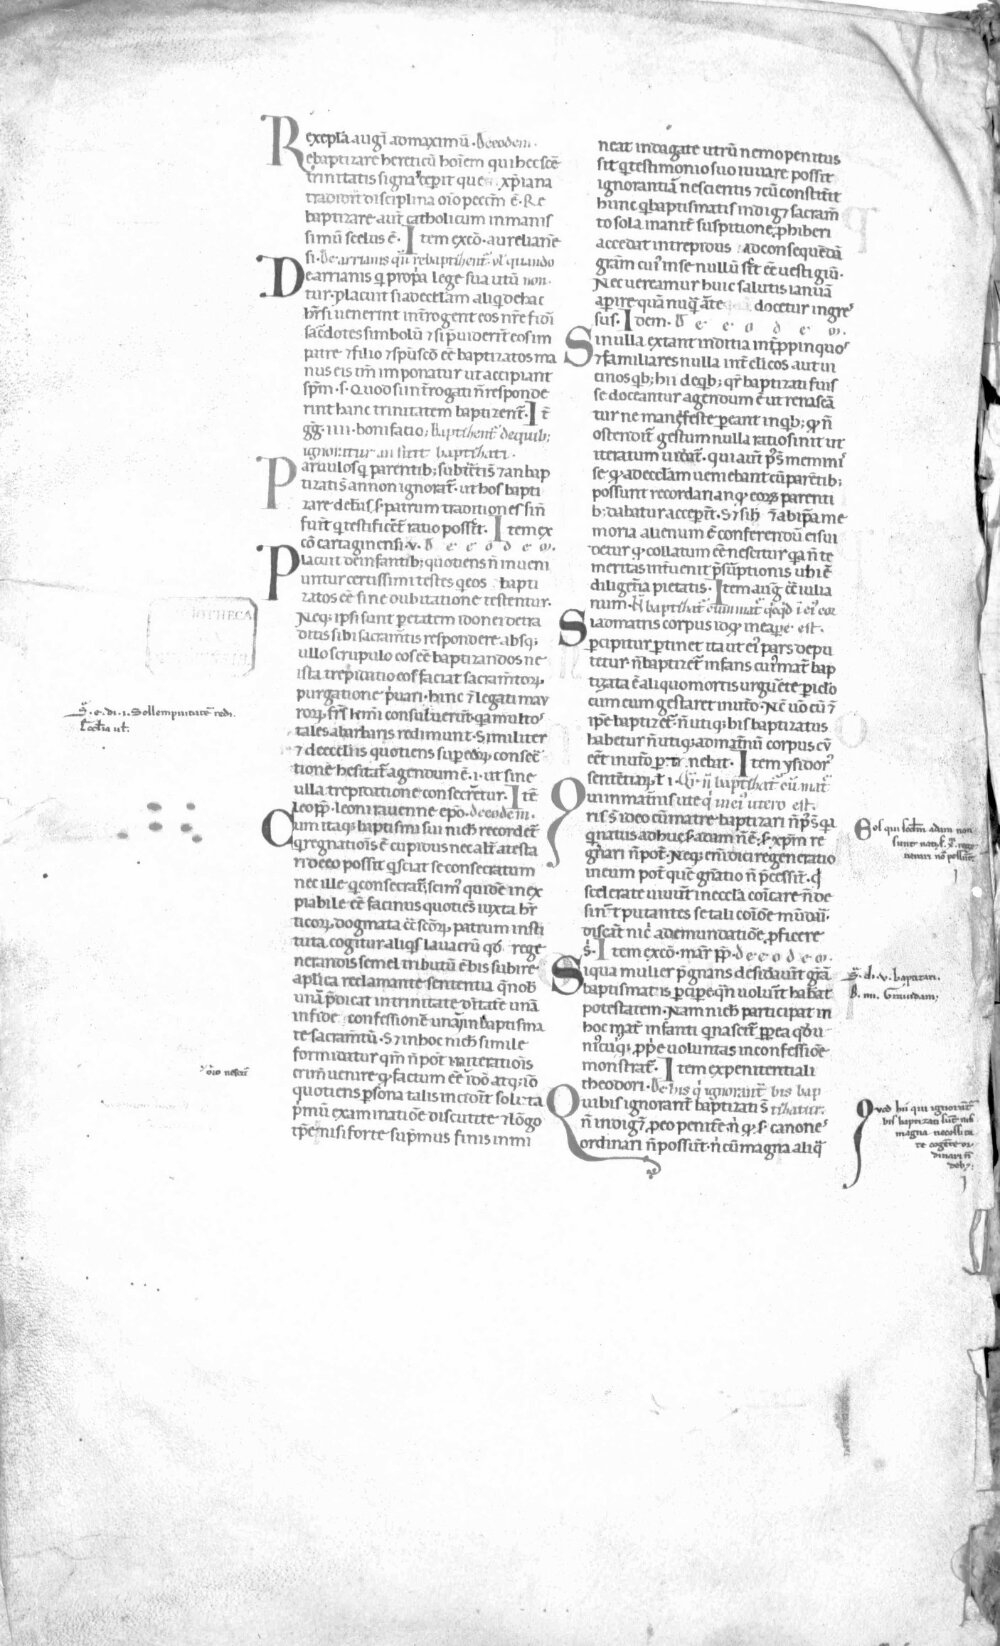 ex epl'a augī ad maximū. De eodem.
Rebaptizare hereticū hoīem qui hec scē
trinitatis signa
tradidit disciplina oīo peccm ē. Re
baptizare aut catholicum inmanis
simū scelus ē. Item ex cō. aurelianē
si. De arrianis
De arrianis q̄ ppa lege sua utū non
tur. placuit si ad eccłam aliq̄ de hac
hr̄si uenerint int̄rogent eos nr̄e fidi
sac̄dotes simbolū ⁊ si puiderit eos in
patre ⁊ filio ⁊ sp̄uscō ēē baptizatos ma
nus eis tm̄ imponatur ut accipiant
sp̄m. s. Quod si int̄rogati n̄ responde
rint hanc trinitatem baptizent. It̄
gḡ. iiii. bonifatio. Baptizent de quib;
ignoratur an sint baptizati.
Paruulos q̄ parentib; subt̄cti s̄ ⁊ an bap
tizati s̄ an non ignorat. ut hos bapti
zare debeas. s. patrum traditiones si n̄
fuit q̄ testificet ratio posst. Item ex
cō cartaginensi. v. De eodem.
Placuit de infantib; quotiens n̄ inueni
untur certissimi testes q̄ eos bapti
zatos ēē sine dubitatione testentur.
Neq; ipsi sunt p etatem idonei de tra
ditis sibi sacram̄tis respondere absq;
ullo scrupulo eos ēē baptizandos ne
ista trepidatio eos faciat sacram̄torꝫ
purgatione p̄uari. hinc n̄ legati mau
rorꝫ fr̄s nr̄i consuluerūt q̄a multos
tales a barbaris redimunt. Similiter
⁊ de eccłiis quotiens sup earꝫ consec̄
tione hesitat agendum ē. i. ut sine
ulla trepidatione consecretur. Itē
leo pp. leoni rauenne epō. de eodem.
Cum itaq; baptismi sui nich recordet
q̄ regnationis ē cupidus nec alt̄ attesta
ri de eo possit q̄ sciat se consecratum
nec ille q̄ consecrat
piabile ēē facinus quotiēs iuxta hr̄
ticorꝫ dogmata ł scōrꝫ patrum insti
tuta cogitur aliq̄s lauacrū qd rege
nerandis semel tributū ē bis subire
aplica reclamante sententia q̄ nob
unā p̄dicat in trinitate d̄itatē unā
in fide confessionē unā in baptisma
te sacram̄tū. S; in hoc nich simile
formidatur qm̄ n̄ pot in iterationis
crim̄ uenire qd factum ēē
quotiens p̄sona talis inciderit solicita
p̄mū examinatiōe discutite ⁊ lōgo
tp̄e nisi forte sup̄mus finis immi
neat indagate utrū nemo penitus
sit q̄ testimonio suo iuuare possit
ignorantiā nescientis ⁊ cū constitit
hunc q̄ baptismatis indig; sacram̄
to sola manet suspitione phiberi
accedat intrepidus ad consequēdā
grām cui in se nullū scit ēē uestigiū.
Nec uereamur huic salutis ianuā
aperire quā nūq̄ ate docetur ingres
sus. Idem. De eodem.
Si nulla extant inditia int ppinquos
⁊ familiares nulla int clicos aut ui
cinos qb; hii de qb; qr̄ baptizati fuis
se doceantur agendum ē ut renascā
tur ne manifeste peant in qb; qd n̄
ostendit gestum nulla ratio sinit ut
iteratum uideat. qui aut p̄s̄ memini
se qd ad eccłam ueniebant cū parētib;
possunt recordari an qd eorꝫ parenti
b; dabatur accepint. S; si h ⁊ ab ipa me
moria alienum ē conferendū eis ui
detur qd collatum ēē nescitur q̄a n̄ te
meritas int̄uenit p̄sūptionis ubi ē
diligentia pietatis. Item aug cē iulia
num.
Si ad matris corpus id qd in ea
pcipitur ptinet ita ut ei pars depu
tetur n̄ baptizet infans cui mat bap
tizata ē aliquo mortis urguēte piclo
cum eum gestaret in utō. Nc̄ uo cū ⁊
ipe baptizet n̄ utiq; bis baptizatus
habetur n̄ utiq; ad mat̄nū corpus cū
eēt in utō ptinebat. Item ysidor
sententiarꝫ l. i. Qr̄ n̄ baptizat cū mat
Qui in matris utero est.
ris s̄ ideo cū matre baptizari n̄ p̄s̄ q̄a
q̄ natus adhuc s. adam n̄ ē. s. xp̄m re
gn̄ari n̄ pot. Neq; em̄ dici regeneratio
in eum pot quē gn̄atio n̄ p̄cessit. q̄
scelerate uiuūt in eccła coīcare n̄ de
sinūt putantes se tali coīōe mūdari.
discāt nich ad emundatiōē pficere
s̄. Item ex cō. mar pp. de eodem.
Si qua mulier p̄gnans desidauit grām
baptismatis pcipe q̄n uoluit habeat
potestatem. Nam nich participat in
hoc mat infanti q̄ nascit. pp ea qd u
nicuiq; ppe uoluntas in confessiōe
monstrat. Item ex penitentiali
theodori. De his q̄ ignorant bis bap
Qui bis ignorant baptizati s̄ tizatur.
n̄ indig; p eo penitē n̄ qd s. canones
ordinari n̄ possunt. n̄ cū magna aliq̄
S. e. di. i. Sollempnitates
IOTHECA
Eos qui scdm adam non
sunt nati s. xp. rege
nerari nō possunt
S. di. v. baptizari.
D. iiii. Emundari
Quod hii qui ignorāt
bis baptizati sunt nisi
magna necessita
te cogēte or
dinari n̄
deb;